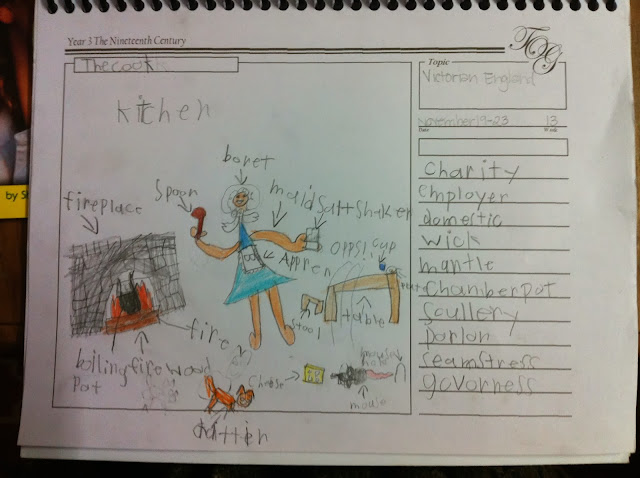 Year 3 The Nineteenth Century
TOG
The cook
Topic
Victorian England
kitchen
November 19-23 13
Date Week
bonet
Spoon
maid
Salt Shaker
fireplace
Opps! cup
Appren
stool
table
fire
boiling
Pot
fire wood
Cheese
mouse
mouse
hole
kittien
Charity
employer
domestic
wick
mantle
Chamber pot
Scullery
parlor
seamstress
govorness
by S